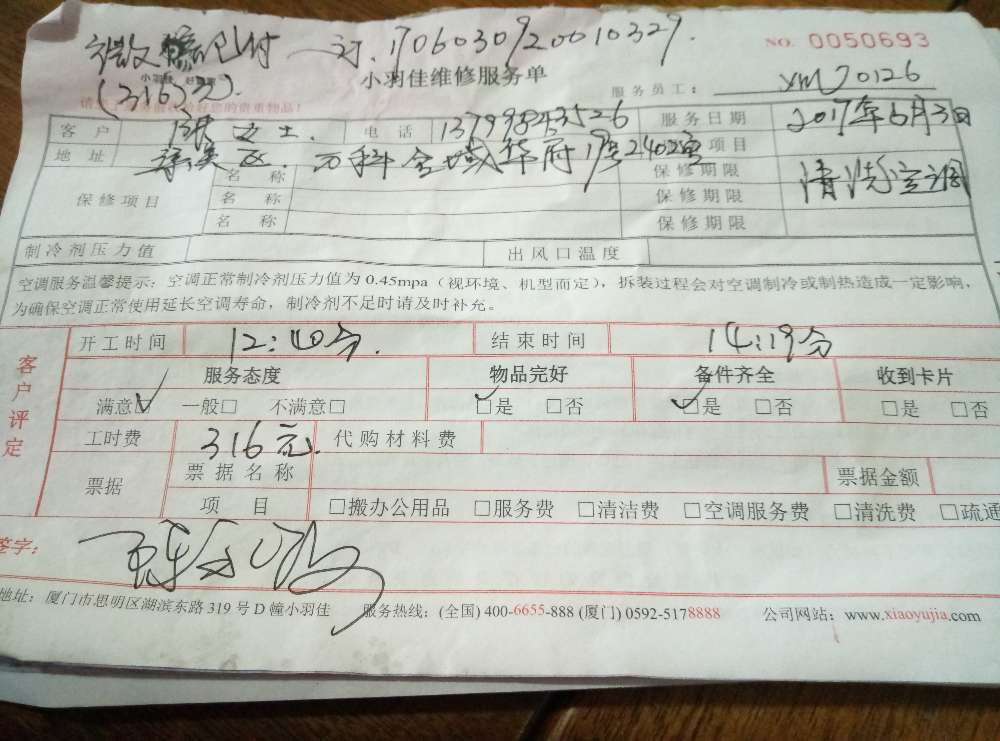 已付 订.170603092001032​9.
(316元).
NO. 0050693
小羽佳维修服务单
服务员工: XM70126
客户 女士. 电话 服务日期 2017年6月3日
地址 集美区.万科金域华府 项目 清洗空调
保修项目 名称 保修期限
名称 保修期限
名称 保修期限
制冷剂压力值 出风口温度
空调服务温馨提示: 空调正常制冷剂压力值为 0.45mpa (视环境、机型而定), 拆装过程会对空调制冷或制热造成一定影响,
为确保空调正常使用延长空调寿命, 制冷剂不足时请及时补充。
客户评定
开工时间 12:40分. 结束时间 14:19分
服务态度 物品完好 备件齐全 收到卡片
满意□ 一般□ 不满意□ □是 □否 □是 □否 □是 □否
工时费 316元. 代购材料费
票据 票据名称 票据金额
项目 □搬办公用品 □服务费 □清洁费 □空调服务费 □清洗费 □疏通
签字:
地址: 厦门市思明区湖滨东路 319 号 D 幢小羽佳 服务热线: (全国) 400-6655-888 (厦门) 0592-5178888 公司网站: www.xiaoyujia.com